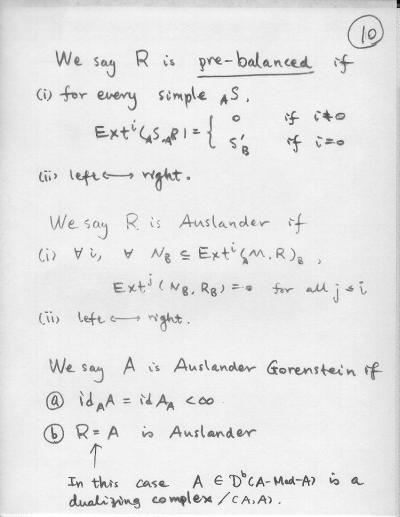 10
We say R is pre-balanced if
(i) for every simple ₐS,
Extⁱ(ₐS, ₐR) = { 0 if i≠0
S'_B if i=0
(ii) left ⟷ right.
We say R is Auslander if
(i) ∀ i, ∀ N_B ⊆ Extⁱ(ₐM, R)_B,
Extʲ(N_B, R_B) = 0 for all j ≤ i
(ii) left ⟷ right.
We say A is Auslander Gorenstein if
ⓐ id ₐA = id A_A < ∞
ⓑ R = A is Auslander
↑
In this case A ∈ Dᵇ(A-Mod-A) is a
dualizing complex / (A, A).